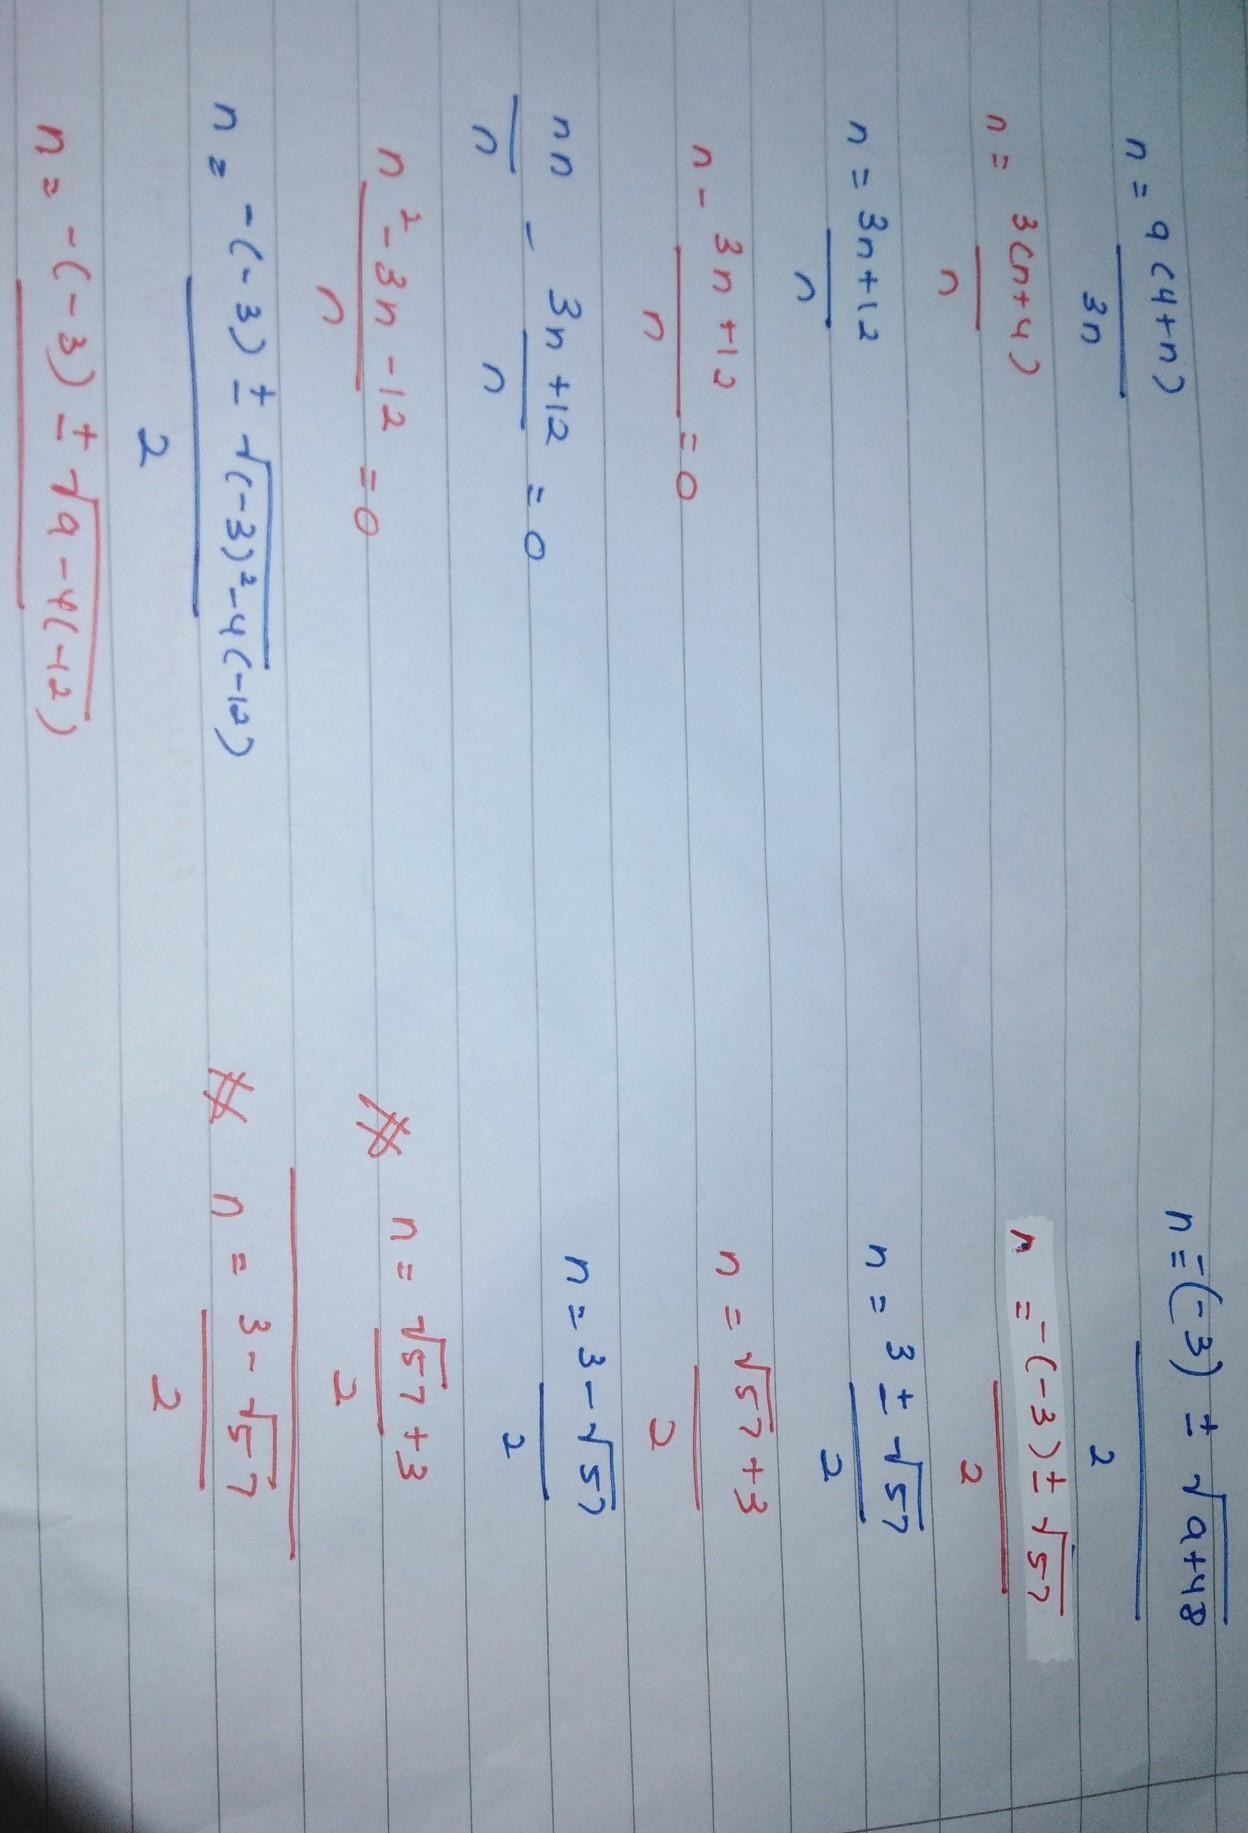 n = 9(4+n) / 3n
n = 3(n+4) / n
n = 3n+12 / n
n - 3n+12 / n = 0
nn / n - 3n+12 / n = 0
n² - 3n - 12 / n = 0
n = -(-3) ± √(-3)²-4(-12) / 2
n = -(-3) ± √9-4(-12)
n = -(-3) ± √9+48 / 2
n = -(-3) ± √57 / 2
n = 3 ± √57 / 2
n = √57 + 3 / 2
n = 3 - √57 / 2
n = √57 + 3 / 2
n = 3 - √57 / 2